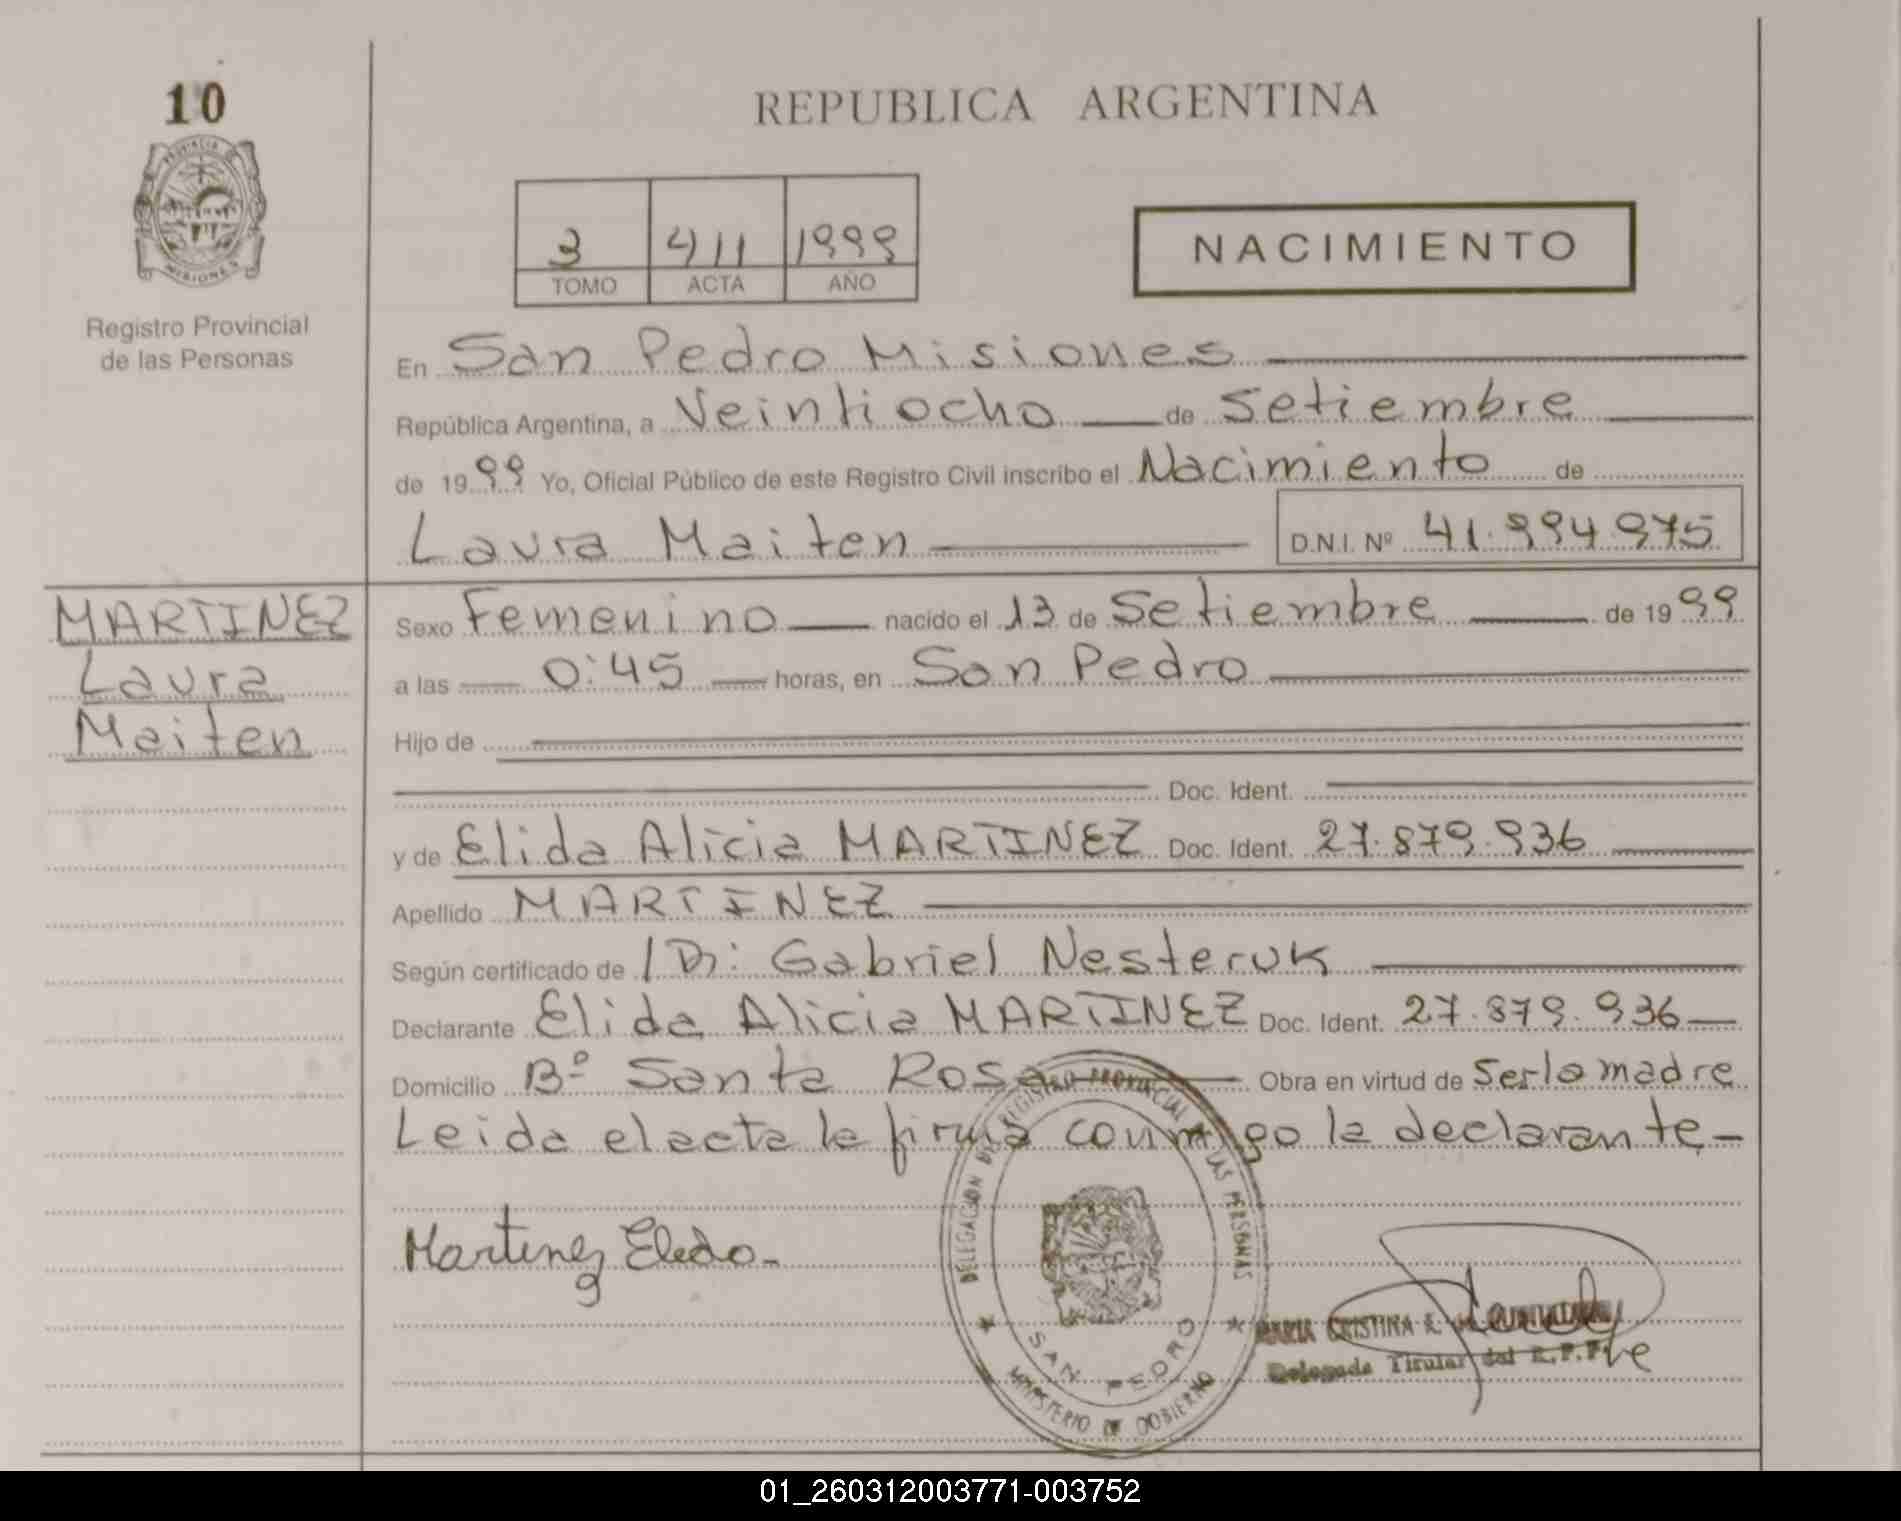 10
PROVINCIA DE
MISIONES
Registro Provincial
de las Personas
REPUBLICA ARGENTINA
3 411 1999
TOMO ACTA AÑO
NACIMIENTO
En San Pedro Misiones
República Argentina, a Veintiocho de Setiembre
de 1999 Yo, Oficial Público de este Registro Civil inscribo el Nacimiento de
Laura Maiten D.N.I. Nº 41.994.975
MARTINEZ
Laura
Maiten
Sexo Femenino nacido el 13 de Setiembre de 1999
a las 0:45 horas, en San Pedro
Hijo de
Doc. Ident.
y de Elida Alicia MARTINEZ Doc. Ident. 27.879.936
Apellido MARTINEZ
Según certificado de Dr: Gabriel Nesteruk
Declarante Elida Alicia MARTINEZ Doc. Ident. 27.879.936
Domicilio Bº Santa Rosa Obra en virtud de Ser la madre
Leida el acta la firma conmigo la declarante
DELEGACION DEL REGISTRO PROVINCIAL DE LAS PERSONAS
SAN PEDRO
MINISTERIO DE GOBIERNO
Martinez Elida
MARIA CRISTINA
Delegada Titular del R.P.P.
01_260312003771-003752